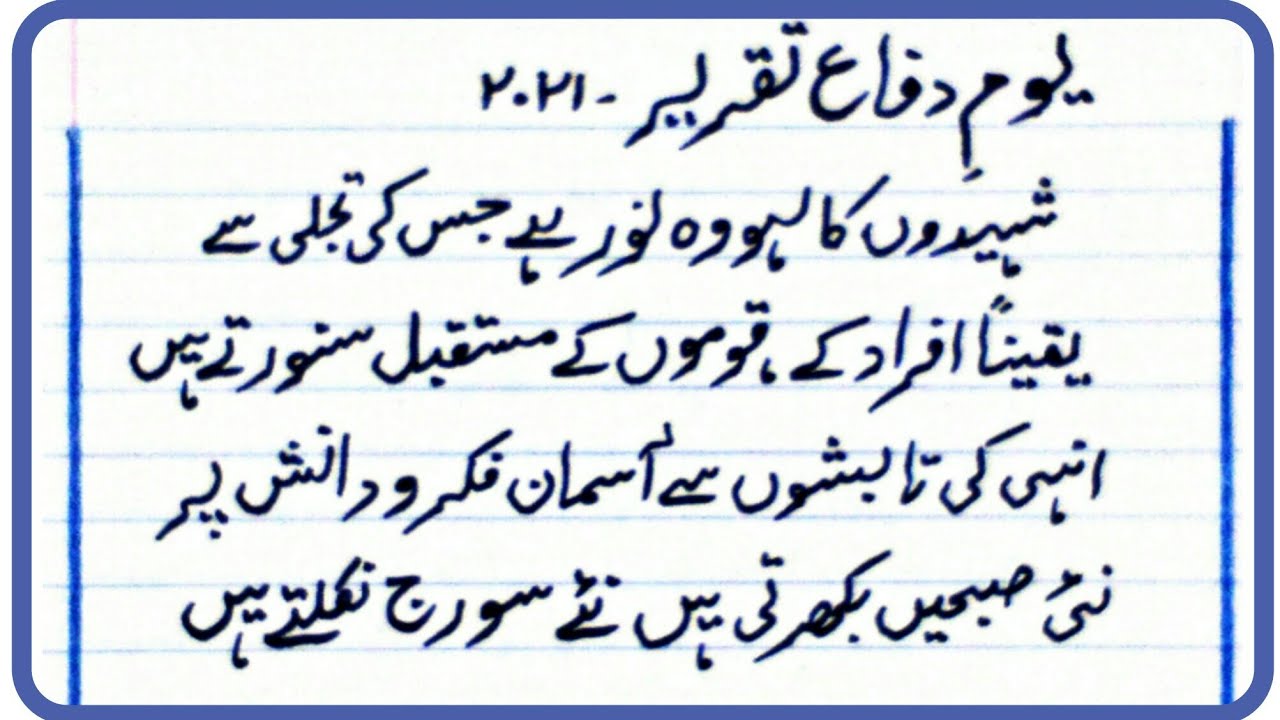 یومِ دفاع تقریر - ۲۰۲۱
شہیدوں کا لہو وہ نور ہے جس کی تجلی سے
یقیناً افراد کے، قوموں کے مستقبل سنورتے ہیں
انہی کی تابشوں سے آسمان فکر و دانش پر
نئی صبحیں بکھرتی ہیں نئے سورج نکلتے ہیں